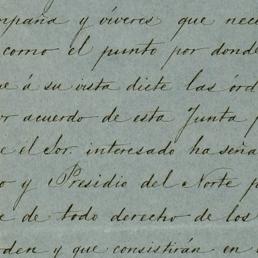 mpaña y víveres que nec
como el punto por donde
e á su vista dicte las órd
or acuerdo de esta Junta p
e el Sor. interesado ha seña
o y Presidio del Norte p
e de todo derecho de los
rden y que consistirán en